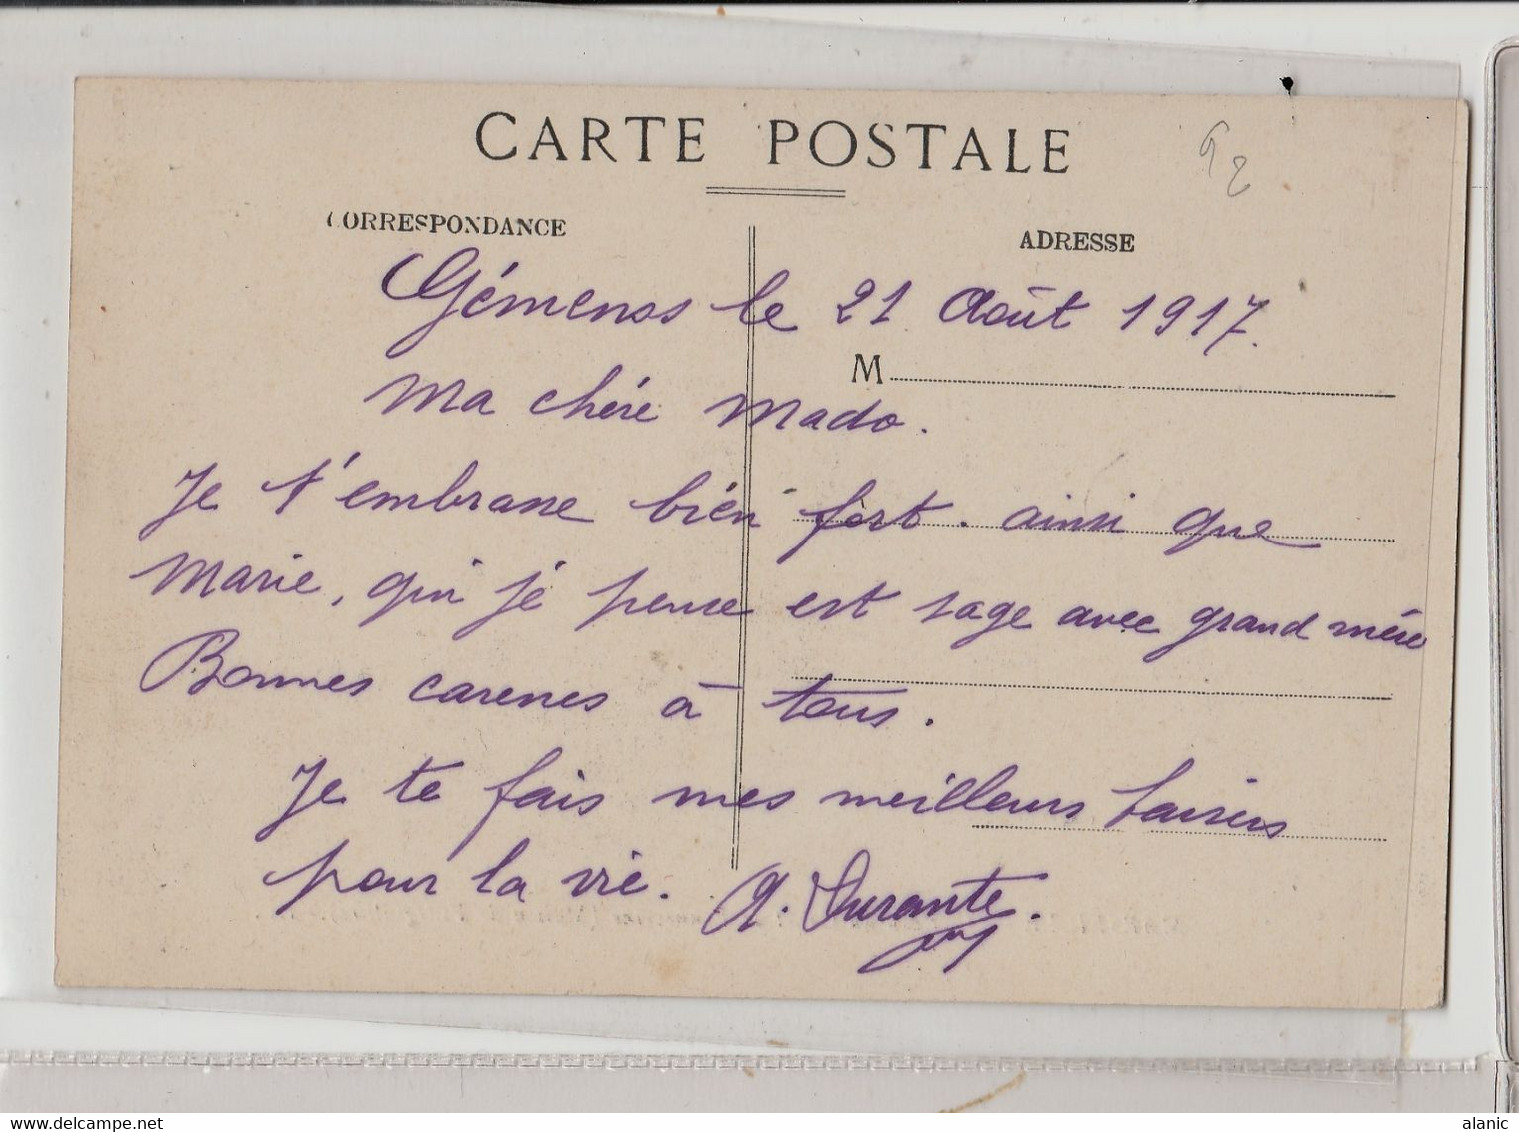 CARTE POSTALE
CORRESPONDANCE
ADRESSE
Gémenos le 21 Août 1917.
M
Ma chère Mado.
Je t'embrasse bien fort. ainsi que
Marie, qui je pense est sage avec grand mère
Bonnes caresses à tous.
Je te fais mes meilleurs baisers
pour la vie. A. Durante.
www.delcampe.net
alanic